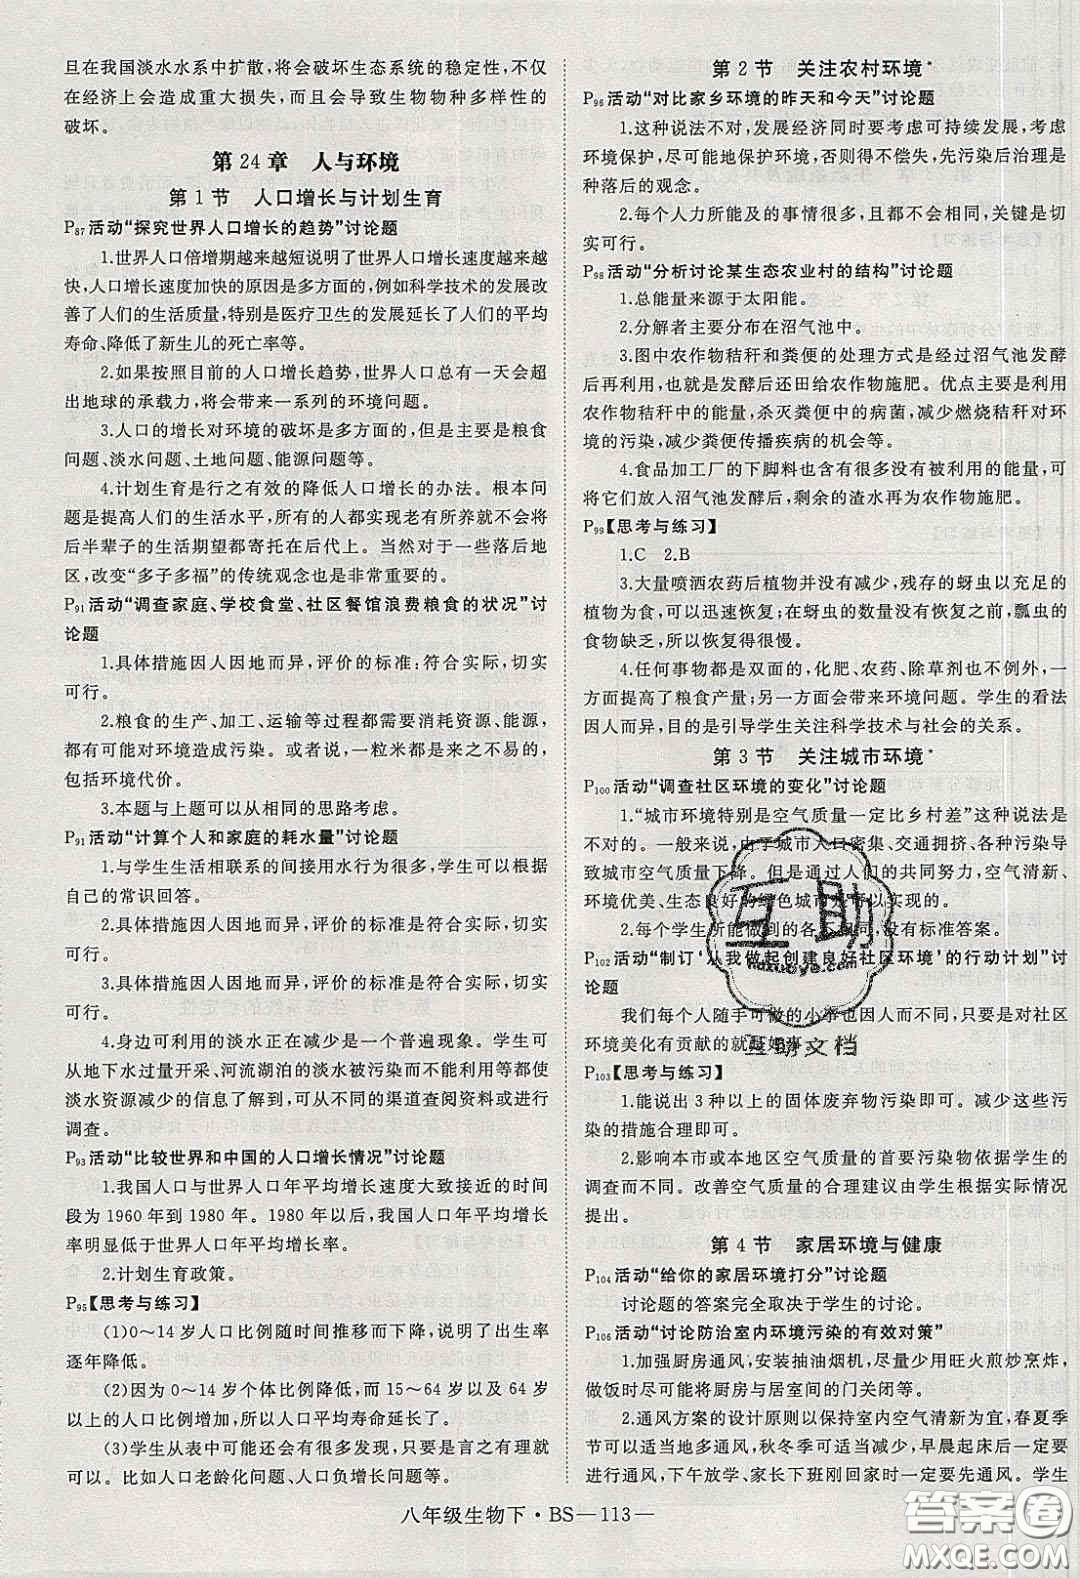 且在我国淡水水系中扩散,将会破坏生态系统的稳定性,不仅
在经济上会造成重大损失,而且会导致生物物种多样性的
破坏。
第24章 人与环境
第1节 人口增长与计划生育
P87活动“探究世界人口增长的趋势”讨论题
1.世界人口倍增期越来越短说明了世界人口增长速度越来越
快,人口增长速度加快的原因是多方面的,例如科学技术的发展改
善了人们的生活质量,特别是医疗卫生的发展延长了人们的平均
寿命、降低了新生儿的死亡率等。
2.如果按照目前的人口增长趋势,将来人口总有一天会超
出地球的承载力,将会带来一系列的环境问题。
3.人口的增长对环境的破坏是多方面的,但是主要是粮食
问题、淡水问题、土地问题、能源问题等。
4.计划生育是行之有效的降低人口增长的办法。根本问
题是提高人们的生活水平,所有的人都能实现老有所养就不会将
后半辈子的生活期望都寄托在后代上。当然,对于一些落后地
区,改变“多子多福”的传统观念也是非常重要的。
P91活动“调查家庭、学校食堂、社区餐馆浪费粮食的状况”讨
论题
1.具体措施因人因地而异,评价的标准:符合实际,切实
可行。
2.粮食的生产、加工、运输等过程都需要消耗资源、能源,
都有可能对环境造成污染。因此,一粒米都来之不易的,
包括环境代价。
3.本题与上题可以从相同的思路考虑。
P91活动“计算个人和家庭的耗水量”讨论题
1.与学生生活相联系的间接用水行为很多,学生可以根据
自己的常识回答。
2.具体措施因人因地而异,评价的标准是符合实际,切实
可行。
3.具体措施因人因地而异,评价的标准是符合实际,切实
可行。
4.身边可利用的淡水正在减少是一个普遍现象。学生可
从地下水过量开采、河流湖泊的淡水被污染而不能使用等使
淡水资源减少的信息了解到,可从不同的渠道查阅资料或进行
调查。
P93活动“比较世界和中国的人口增长情况”讨论题
1.我国人口与世界人口年平均增长速度大致接近的时间
段为1960年到1980年。1980年以后,我国人口年平均增长
率明显低于世界人口年平均增长率。
2.计划生育政策。
P95【思考与练习】
(1)0～14岁人口比例随时间推移而下降,说明出生率
逐年降低。
(2)因为0～14岁个体比例降低,而15～64岁以及64岁
以上的人口比例增加,所以说明人口的平均寿命在延长。
(3)学生从表中可能还会有很多发现,只要是言之有理就
可以。比如人口老龄化问题、人口负增长问题等。
第2节 关注农村环境*
P96活动“对比家乡环境的昨天和今天”讨论题
1.这种说法不对,发展经济同时要考虑可持续发展,考虑
环境保护,尽可能地保护环境,否则得不偿失,先污染后治理是
种落后的观念。
2.每个人力所能及的事情很多,且都不会相同,关键是切
实可行。
P98活动“分析讨论某生态农业村的结构”讨论题
1.总能量来源于太阳能。
2.分解者主要分布在沼气池中。
3.图中农作物秸秆和粪便的处理方式是经过沼气池发酵
后再利用,就是发酵后还田给农作物施肥。优点主要是利用
农作物秸秆中的能量,杀灭粪便中的病菌,减少燃烧秸秆对环
境的污染,减少粪便传播疾病的机会等。
4.食品加工厂的下脚料也含有没有被利用的能量,可
将它们放入沼气池发酵后,剩余的渣水再为农作物施肥。
P99【思考与练习】
1.C 2.B
3.大量喷洒农药后植物并没有减少,残存的蚜虫以充足的
植物为食,可以迅速恢复;在蚜虫的数量没有恢复之前,瓢虫的
食物缺乏,所以恢复得很慢。
4.任何事物都是双面的,化肥、农药、除草剂也不例外,一
方面提高了粮食产量;另一方面会带来环境问题。学生的看法
因人而异,目的是引导学生关注科学技术与社会的关系。
第3节 关注城市环境*
P100活动“调查社区环境的变化”讨论题
1.“城市环境特别是空气质量一定比乡村差”这种说法是
不对的。一般来说,由于城市人口密集、交通拥挤、各种污染导
致城市空气质量下降。但是通过人们的共同努力,空气清新、
环境优美、生态良好的绿色城市是可以实现的。
2.每个学生所能做到的各不相同,没有标准答案。
P102活动“制订‘从我做起创建良好社区环境’的行动计划”讨
论题
我们每个人随手可做的小事也因人而不同,只要是对社区
环境美化有贡献的就是好事。
P103【思考与练习】
1.能说出3种以上的固体废弃物污染即可。减少这些污
染的措施合理即可。
2.影响本市或本地区空气质量的首要污染物依据学生的
调查而不同。改善空气质量的合理建议由学生根据实际情况
提出。
第4节 家居环境与健康
P104活动“给你的家居环境打分”讨论题
讨论题的答案完全取决于学生的讨论。
P106活动“讨论防治室内环境污染的有效对策”
1.加强厨房通风,安装抽油烟机,尽量少用旺火煎炒烹炸,
做饭时尽量将厨房与居室间的门关闭等。
2.通风方案的设计原则以保持室内空气清新为宜,春夏季
节可以时间长一些多通风,秋冬季可适当减少,早晨起床后一定要
进行通风,下午放学、家长下班刚回家时一定要进行通风。学生
互助
muxuoye.com
互助文档
八年级生物下·BS—113—
答案圈
MXQE.COM